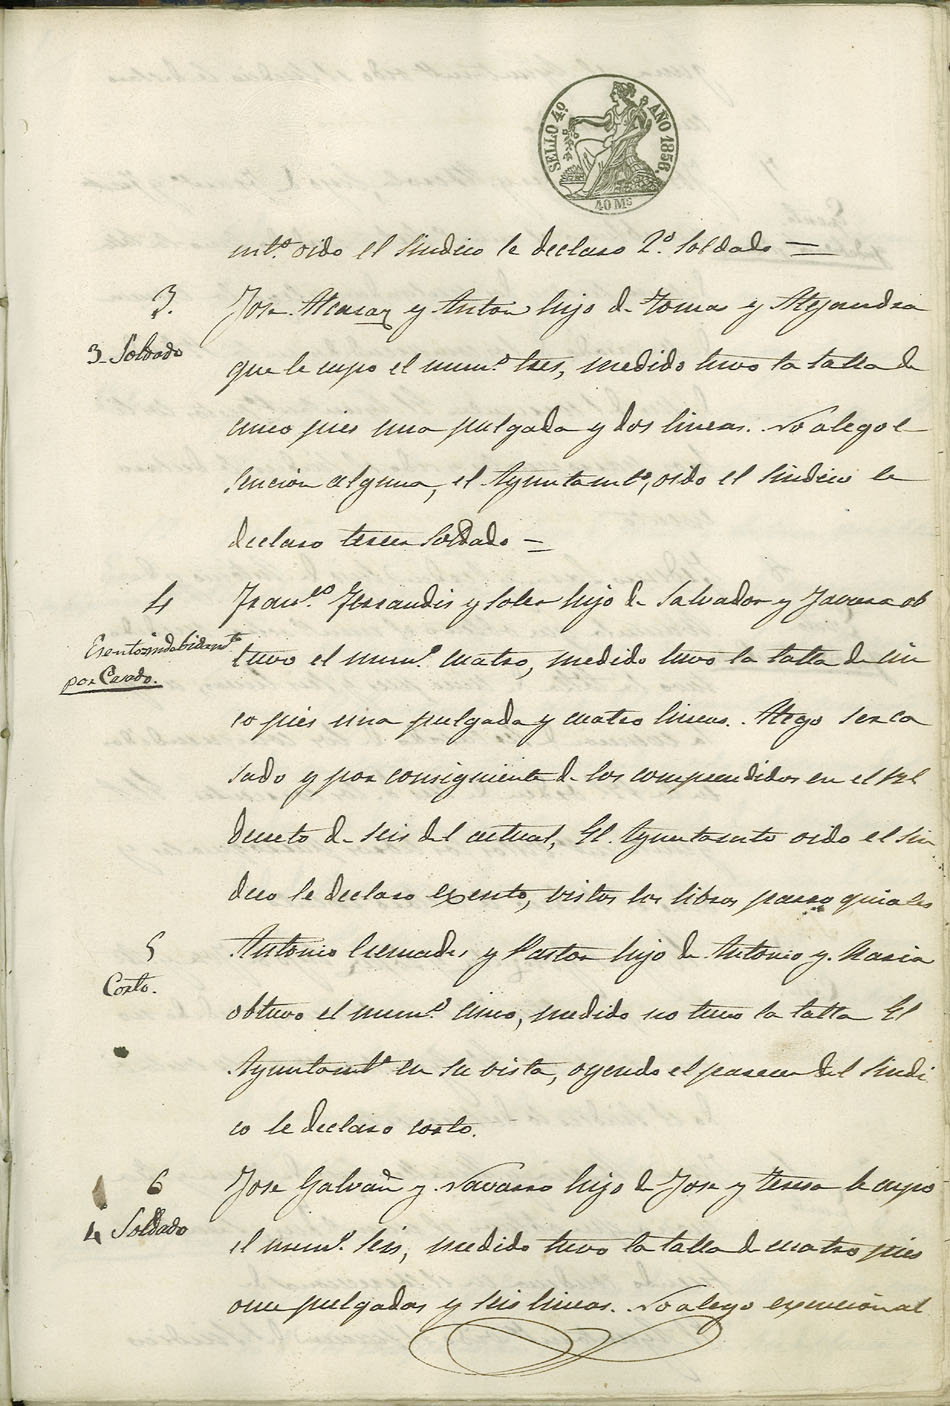 SELLO 4º AÑO 1856.
40 Ms
mtº oido el Sindico le declaro 2º Soldado =
3.
3 Soldado
Jose Alcaraz y Anton hijo de Tomas y Alejandra
que le cupo el numº tres, medido tuvo la talla de
cinco pies una pulgada y dos lineas. No alego e
sencion alguna, el Ayuntamtº, oido el Sindico le
declaro tercer Soldado =
4
Esento indebidamte
por Casado.
Francº Ferrandis y Soler hijo de Salvador y Javiera ob
tuvo el numº cuatro, medido tuvo la talla de cin
co pies una pulgada y cuatro lineas. Alego ser ca
sado y por consiguiente de los comprendidos en el Rl
Decreto de seis del actual, El Ayuntamto oido el Sin
dico le declaro exento, vistos los libros parroquiales
5
Corto.
Antonio Cremades y Pastor hijo de Antonio y Maria
obtuvo el numº cinco, medido no tuvo la talla El
Ayuntamtº en su vista, oyendo el parecer del Sindi
co le declaro corto.
6
4 Soldado
Jose Galvañ y Navarro hijo de Jose y Teresa le cupo
el numº seis, medido tuvo la talla de cuatro pies
once pulgadas y seis lineas. No alego exencion al